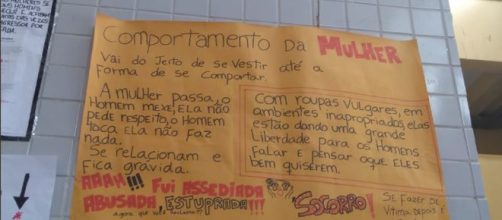 MULHERES
Comportamento Da MULHER
Vai do Jeito de se Vestir até a
Forma de se Comportar.
A mulher passa, o
Homem mexe, Ela não
pede respeito, o Homem
toca Ela não faz
nada.
Se relacionam e
Fica grávida.
com roupas vulgares, em
ambientes inapropriados, elas
estão dando uma grande
liberdade para os Homens
Falar e pensar oque ELES
bem quiserem.
AAAH!!! Fui ASSEDIADA
ABUSADA ESTUPRADA!!!
SOCORRO!
SE FAZER DE
Vítima depois é
Agora que você